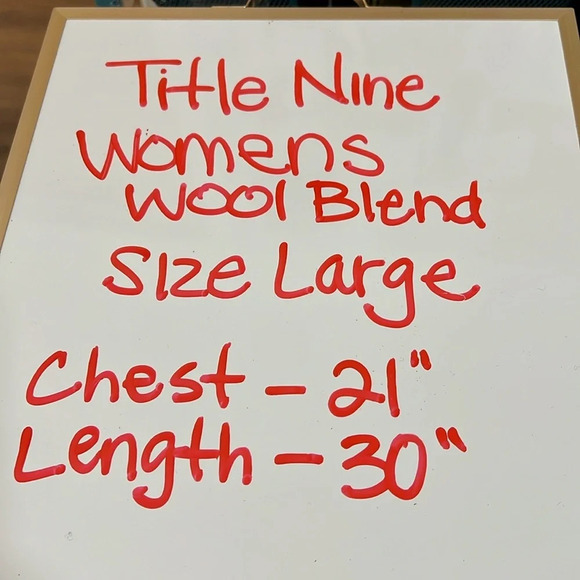 Title Nine
Womens
Wool Blend
Size Large
Chest - 21"
Length - 30"